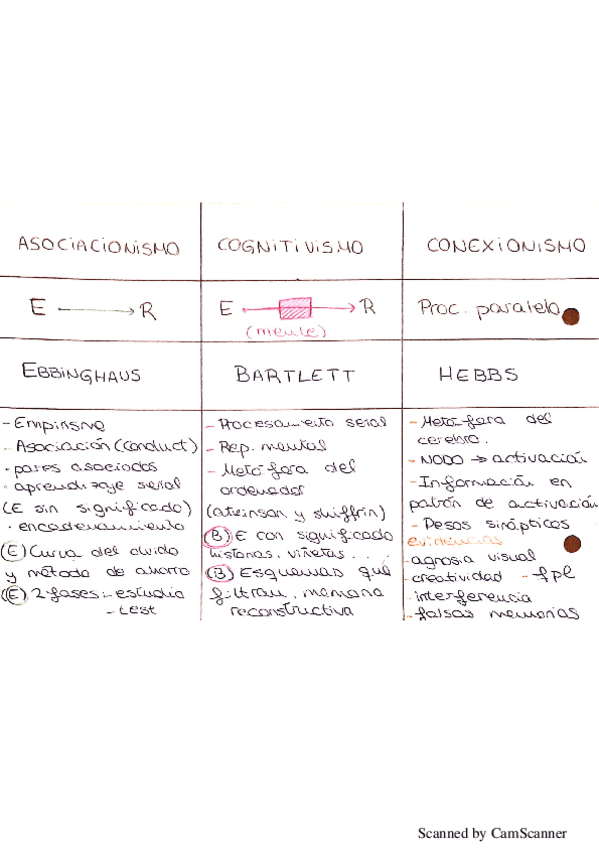 ASOCIACIONISMO
COGNITIVISMO
CONEXIONISMO
E → R
E → R
(mente)
Proc. paralelo
EBBINGHAUS
BARTLETT
HEBBS
- Empirismo
- Asociación (conduct)
· pares asociados
· aprendizaje serial
(E sin significado)
· encadenamiento
(E) Curva del olvido
y método de ahorro
(E) 2 fases - estudio
- test
- Procesamiento serial
- Rep. mental
- Metáfora del
ordenador
(atkinson y shiffrin)
(B) E con significado
historias, viñetas...
(B) Esquemas que
filtran, memoria
reconstructiva
- Metáfora del
cerebro.
- NODO → activación
- Información en
patrón de activación
- Pesos sinápticos
evidencias
- agnosia visual
- creatividad - fpl
- interferencia
- falsas memorias
Scanned by CamScanner